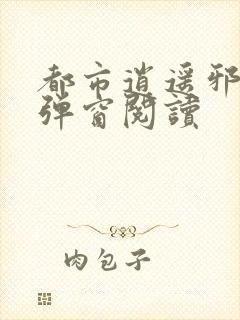 都市逍遥邪
弹窗閱讀
肉包子